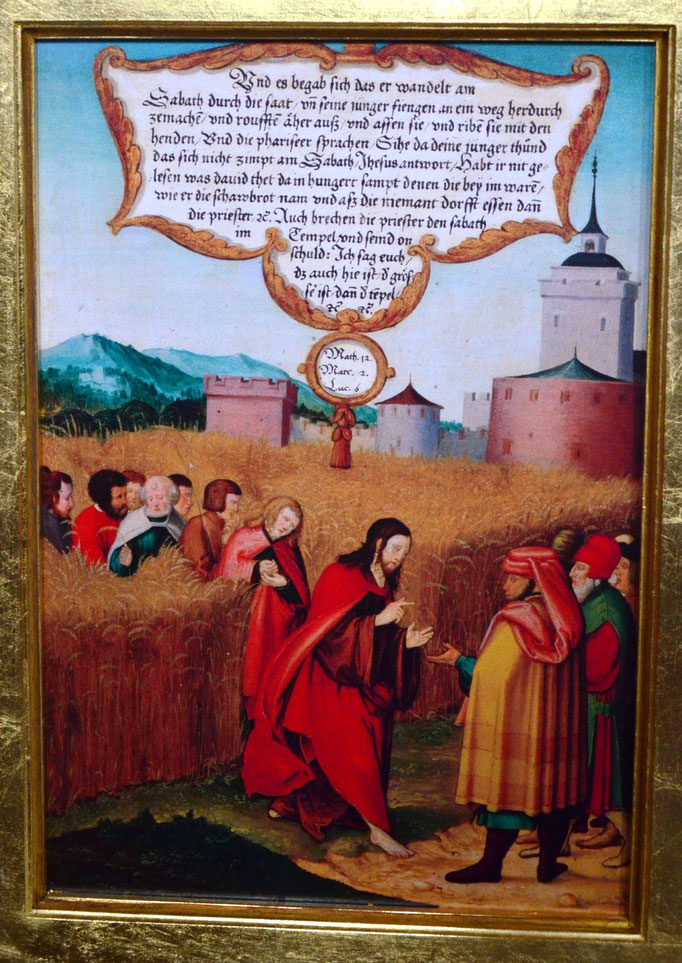 Vnd es begab sich das er wandelt am
Sabath durch die saat / vñ seine jünger fiengen an ein weg herdurch
zemachẽ / vnd roufftẽ äher auß / vnd assen sie / vnd ribẽ sie mit den
henden / Vnd die phariseer sprachen / Sihe da deine junger thũnd
das sich nicht zimpt am Sabath / Jhesus antwort / Habt ir nit ge-
lesen was dauid thet da in hungert sampt denen die bey im warẽ /
wie er die schawbrot nam vnd aß / die niemant dorfft essen dañ
die priester ꝛc. Auch brechen die priester den sabath
im Tempel / vnd seind on
schuld: Ich sag euch /
dz auch hie ist d̕ grös-
se' ist / dañ d̕ tẽpel
ꝛc ꝛc.
Math. 12.
Marc. 2.
Luc. 6